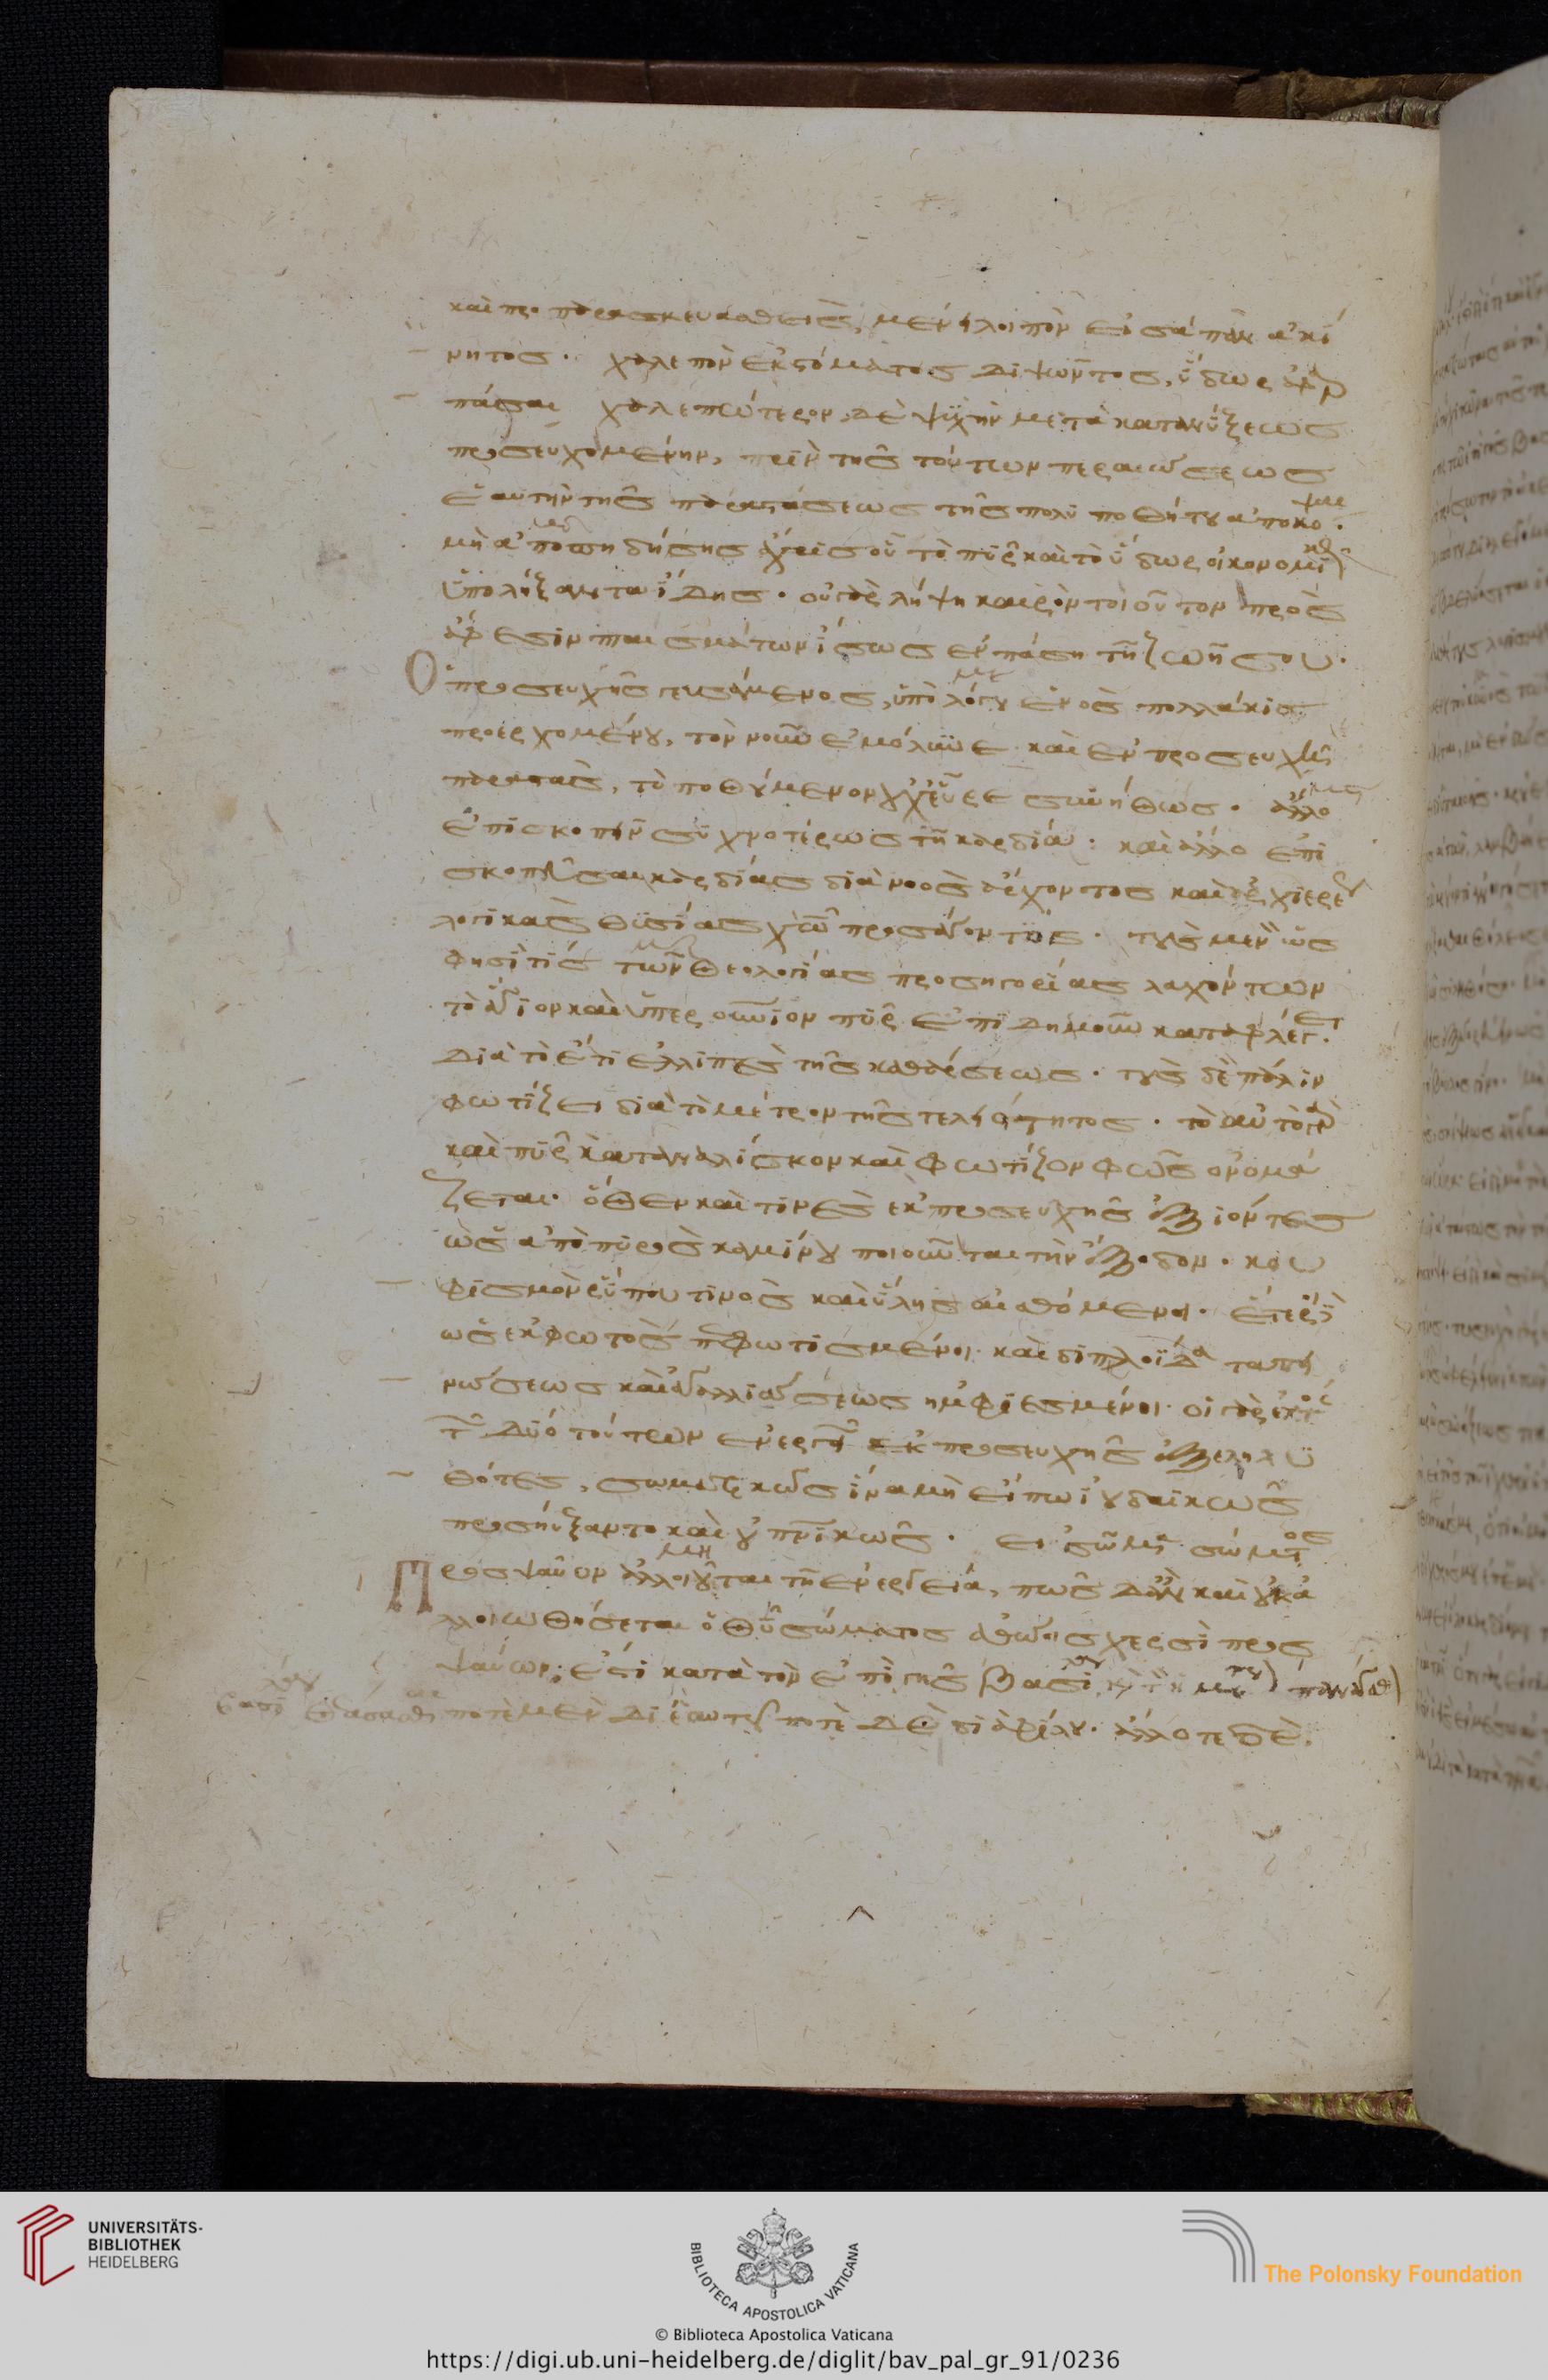 καὶ προπαρασκευασθεὶς, μένει λοιπὸν εἰσάπαν ἀκί
νητος. χαλεπὸν ἐκ στόματος διψῶντος, ὕδωρ ἁρ
πάσαι χαλεπώτερον δὲ ψυχὴν μετὰ κατανύξεως
προσευχομένην, πρὶν τῆς τούτων περαιώσεως
ἑαυτὴν τῆς παραστάσεως τῆς πολυποθήτου ἀποκόψαι.
μὴ ἀποπηδήσης ἄχρις οὗ τὸ πῦρ καὶ τὸ ὕδωρ οἰκονομικῶς
ὑπολήξαντα ἴδης. οὐ γὰρ λήψη καιρὸν τοιοῦτον πρὸς
ἄφεσιν πταισμάτων ἴσως ἐν πάση τῆ ζωῆ σου.
Ο προσευχῆς γευσάμενος, ὑπὸ λόγου ἑνὸς πολλάκις
προερχομένου, τὸν νοῦν ἐμόλυνε καὶ ἐν προσευχῆ
παραστὰς, τὸ ποθούμενον οὐχ εὗρε συνήθως. ἄλλο
ἐπισκοπεῖν συχνοτέρως τῆ καρδία. καὶ ἄλλο ἐπι
σκοπῆσαι καρδίας διὰ νοὸς ἄρχοντος καὶ ἀρχιερέως
λογικὰς θυσίας χῶ προσάγοντος. τοὺς μὲν ὡς
φησί τίς τῶν θεολογίας προσηγορίας λαχόντων
τὸ ἅγιον καὶ ὑπερουνιον πῦρ ἐπιδημοῦν καταφλέγει.
διὰ τὸ ἔτι ἐλλιπὲς τῆς καθάρσεως. τοὺς δὲ πάλιν
φωτίζει διὰ τὸ μέτρον τῆς τελειότητος. τὸ αὐτὸ γὰρ
καὶ πῦρ καταναλίσκον καὶ φωτίζον φῶς ὀνομά
ζεται. ὅθεν καὶ τινὲς ἐκ προσευχῆς ἐξιόντες
ὡς ἀπὸ πυρὸς καμίνου ποιοῦνται τὴν ἔξοδον. κου
φισμὸν ῥύπου τινὸς καὶ ὕλης αἰσθόμενοι. ἕτεροι
ὡς ἐκ φωτὸς πεφωτισμένοι καὶ διπλοΐδα ταπει
νώσεως καὶ ἀγαλλιάσεως ἠμφιεσμένοι. οἱ γὰρ ἐκτός
τῶν δύο τούτων ἐνεργειῶν ἐκ προσευχῆς ἐξεληλυ
θότες, σωματικῶς ἵνα μὴ εἴπω ἰουδαϊκῶς
προσηύξαντο καὶ οὐ πνικῶς. εἰ σῶμα σώματος
Προσψαῦον ἀλλοιοῦται τῆ ἐνεργεία, πῶς καὶ οὐκ ἀ
λλοιωθήσεται ὁ θῦ σώματος ἀθώοις χερσὶ προσ
ψαύων; ἔστι κατὰ τὸν ἐπὶ τῆς
ποτὲ μὲν δι' ἑαυτοῦ ποτὲ δὲ διὰ φίλου. ἄλλοτε δὲ.
UNIVERSITÄTS-
BIBLIOTHEK
HEIDELBERG
BIBLIOTECA APOSTOLICA VATICANA
The Polonsky Foundation
© Biblioteca Apostolica Vaticana
https://digi.ub.uni-heidelberg.de/diglit/bav_pal_gr_91/0236